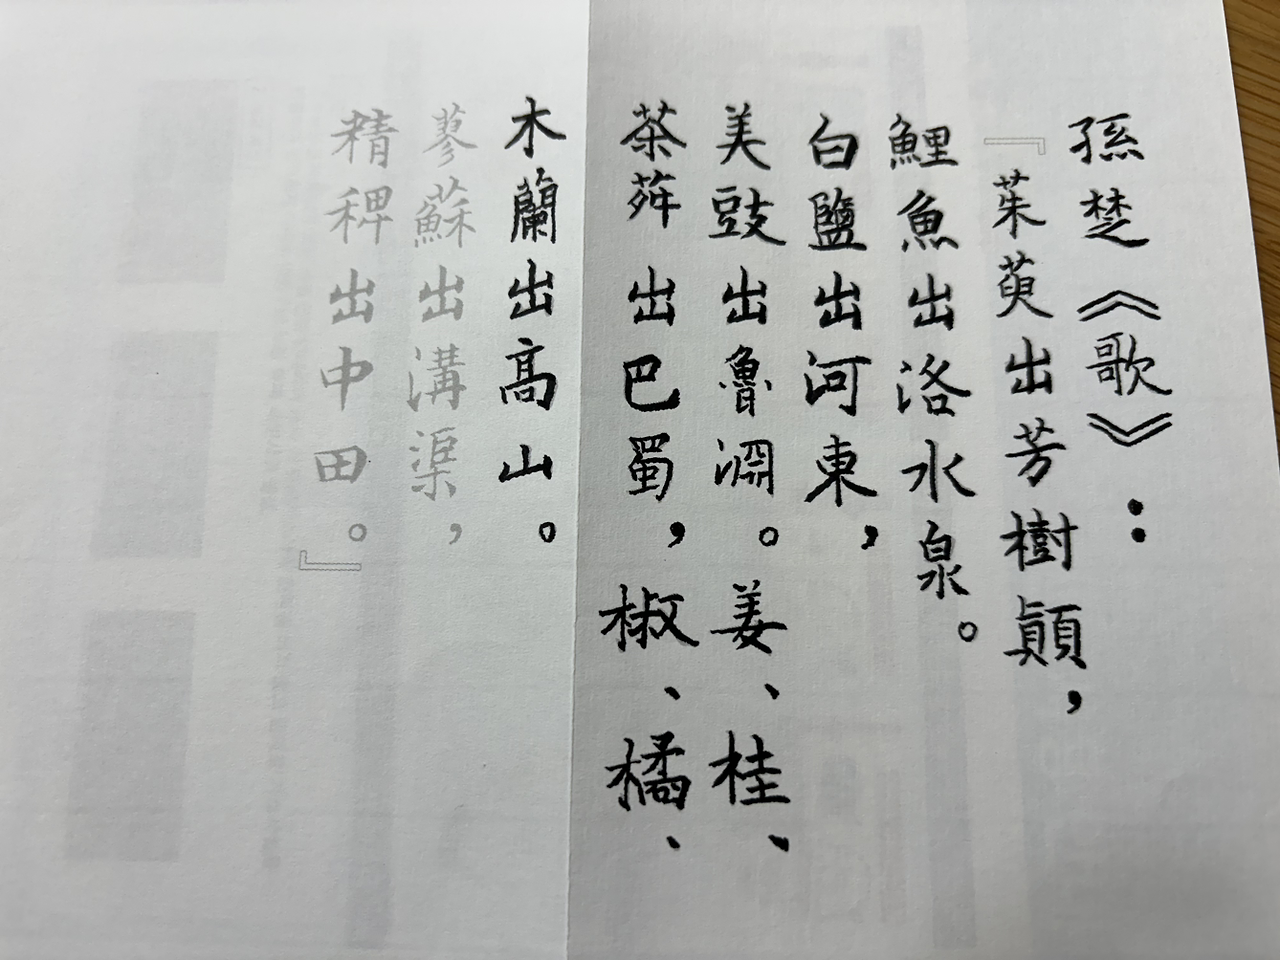 孫楚《歌》：
『茱萸出芳樹顚，
鯉魚出洛水泉。
白鹽出河東，
美豉出魯淵。姜、桂、
茶荈出巴蜀，椒、橘、
木蘭出高山。
蓼蘇出溝渠，
精稗出中田。』